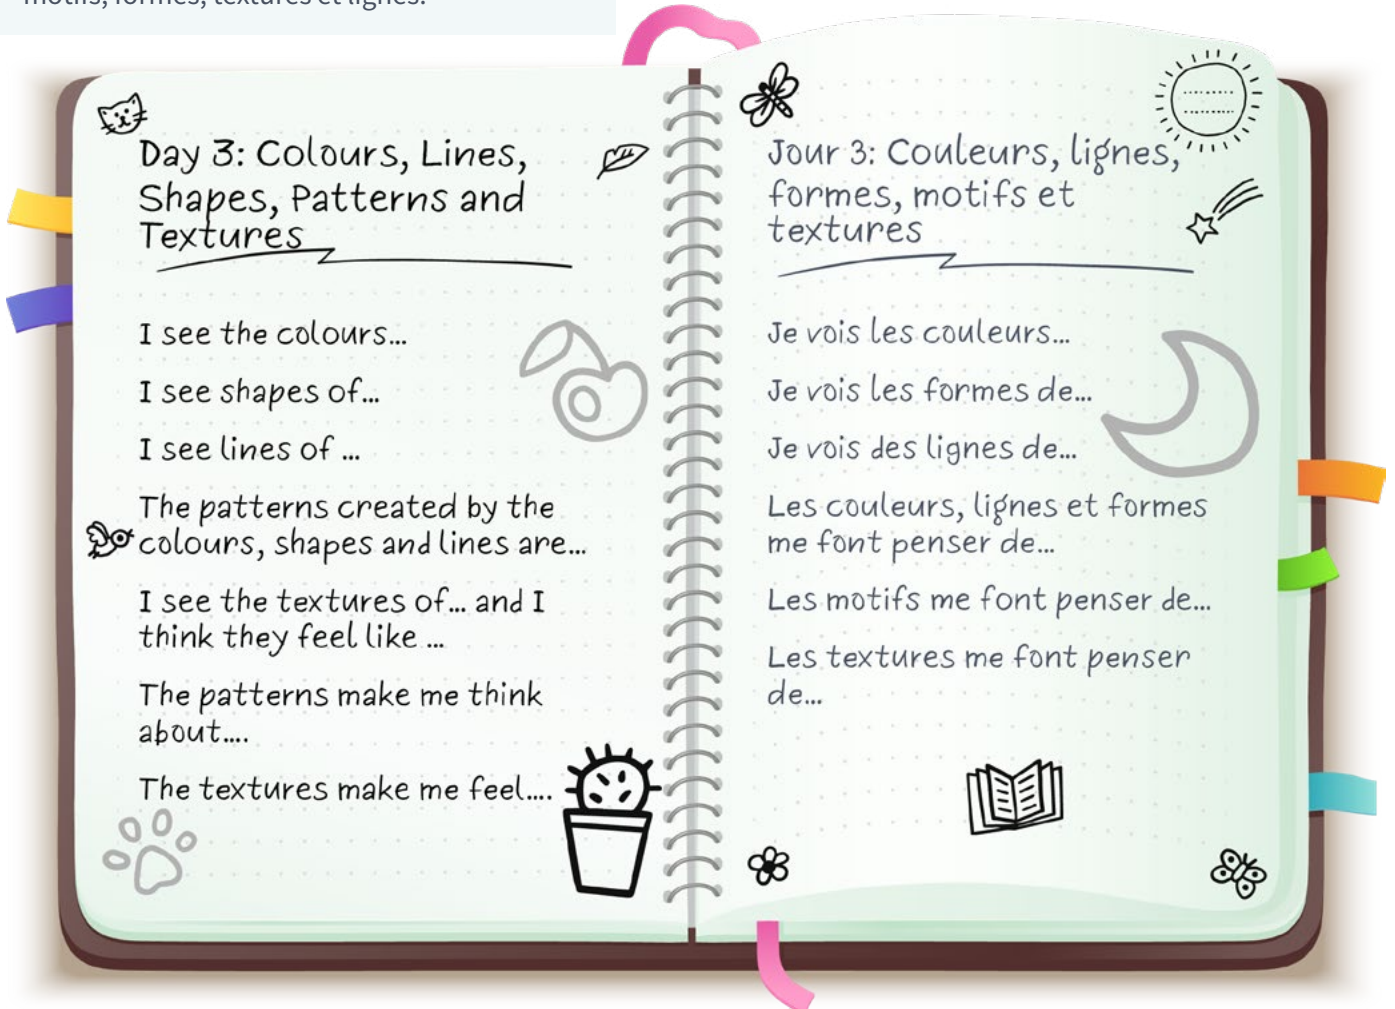 motifs, formes, textures et lignes.
Day 3: Colours, Lines,
Shapes, Patterns and
Textures
I see the colours...
I see shapes of...
I see lines of ...
The patterns created by the
colours, shapes and lines are...
I see the textures of... and I
think they feel like ...
The patterns make me think
about....
The textures make me feel....
Jour 3: Couleurs, lignes,
formes, motifs et
textures
Je vois les couleurs...
Je vois les formes de...
Je vois des lignes de...
Les couleurs, lignes et formes
me font penser de...
Les motifs me font penser de...
Les textures me font penser
de...